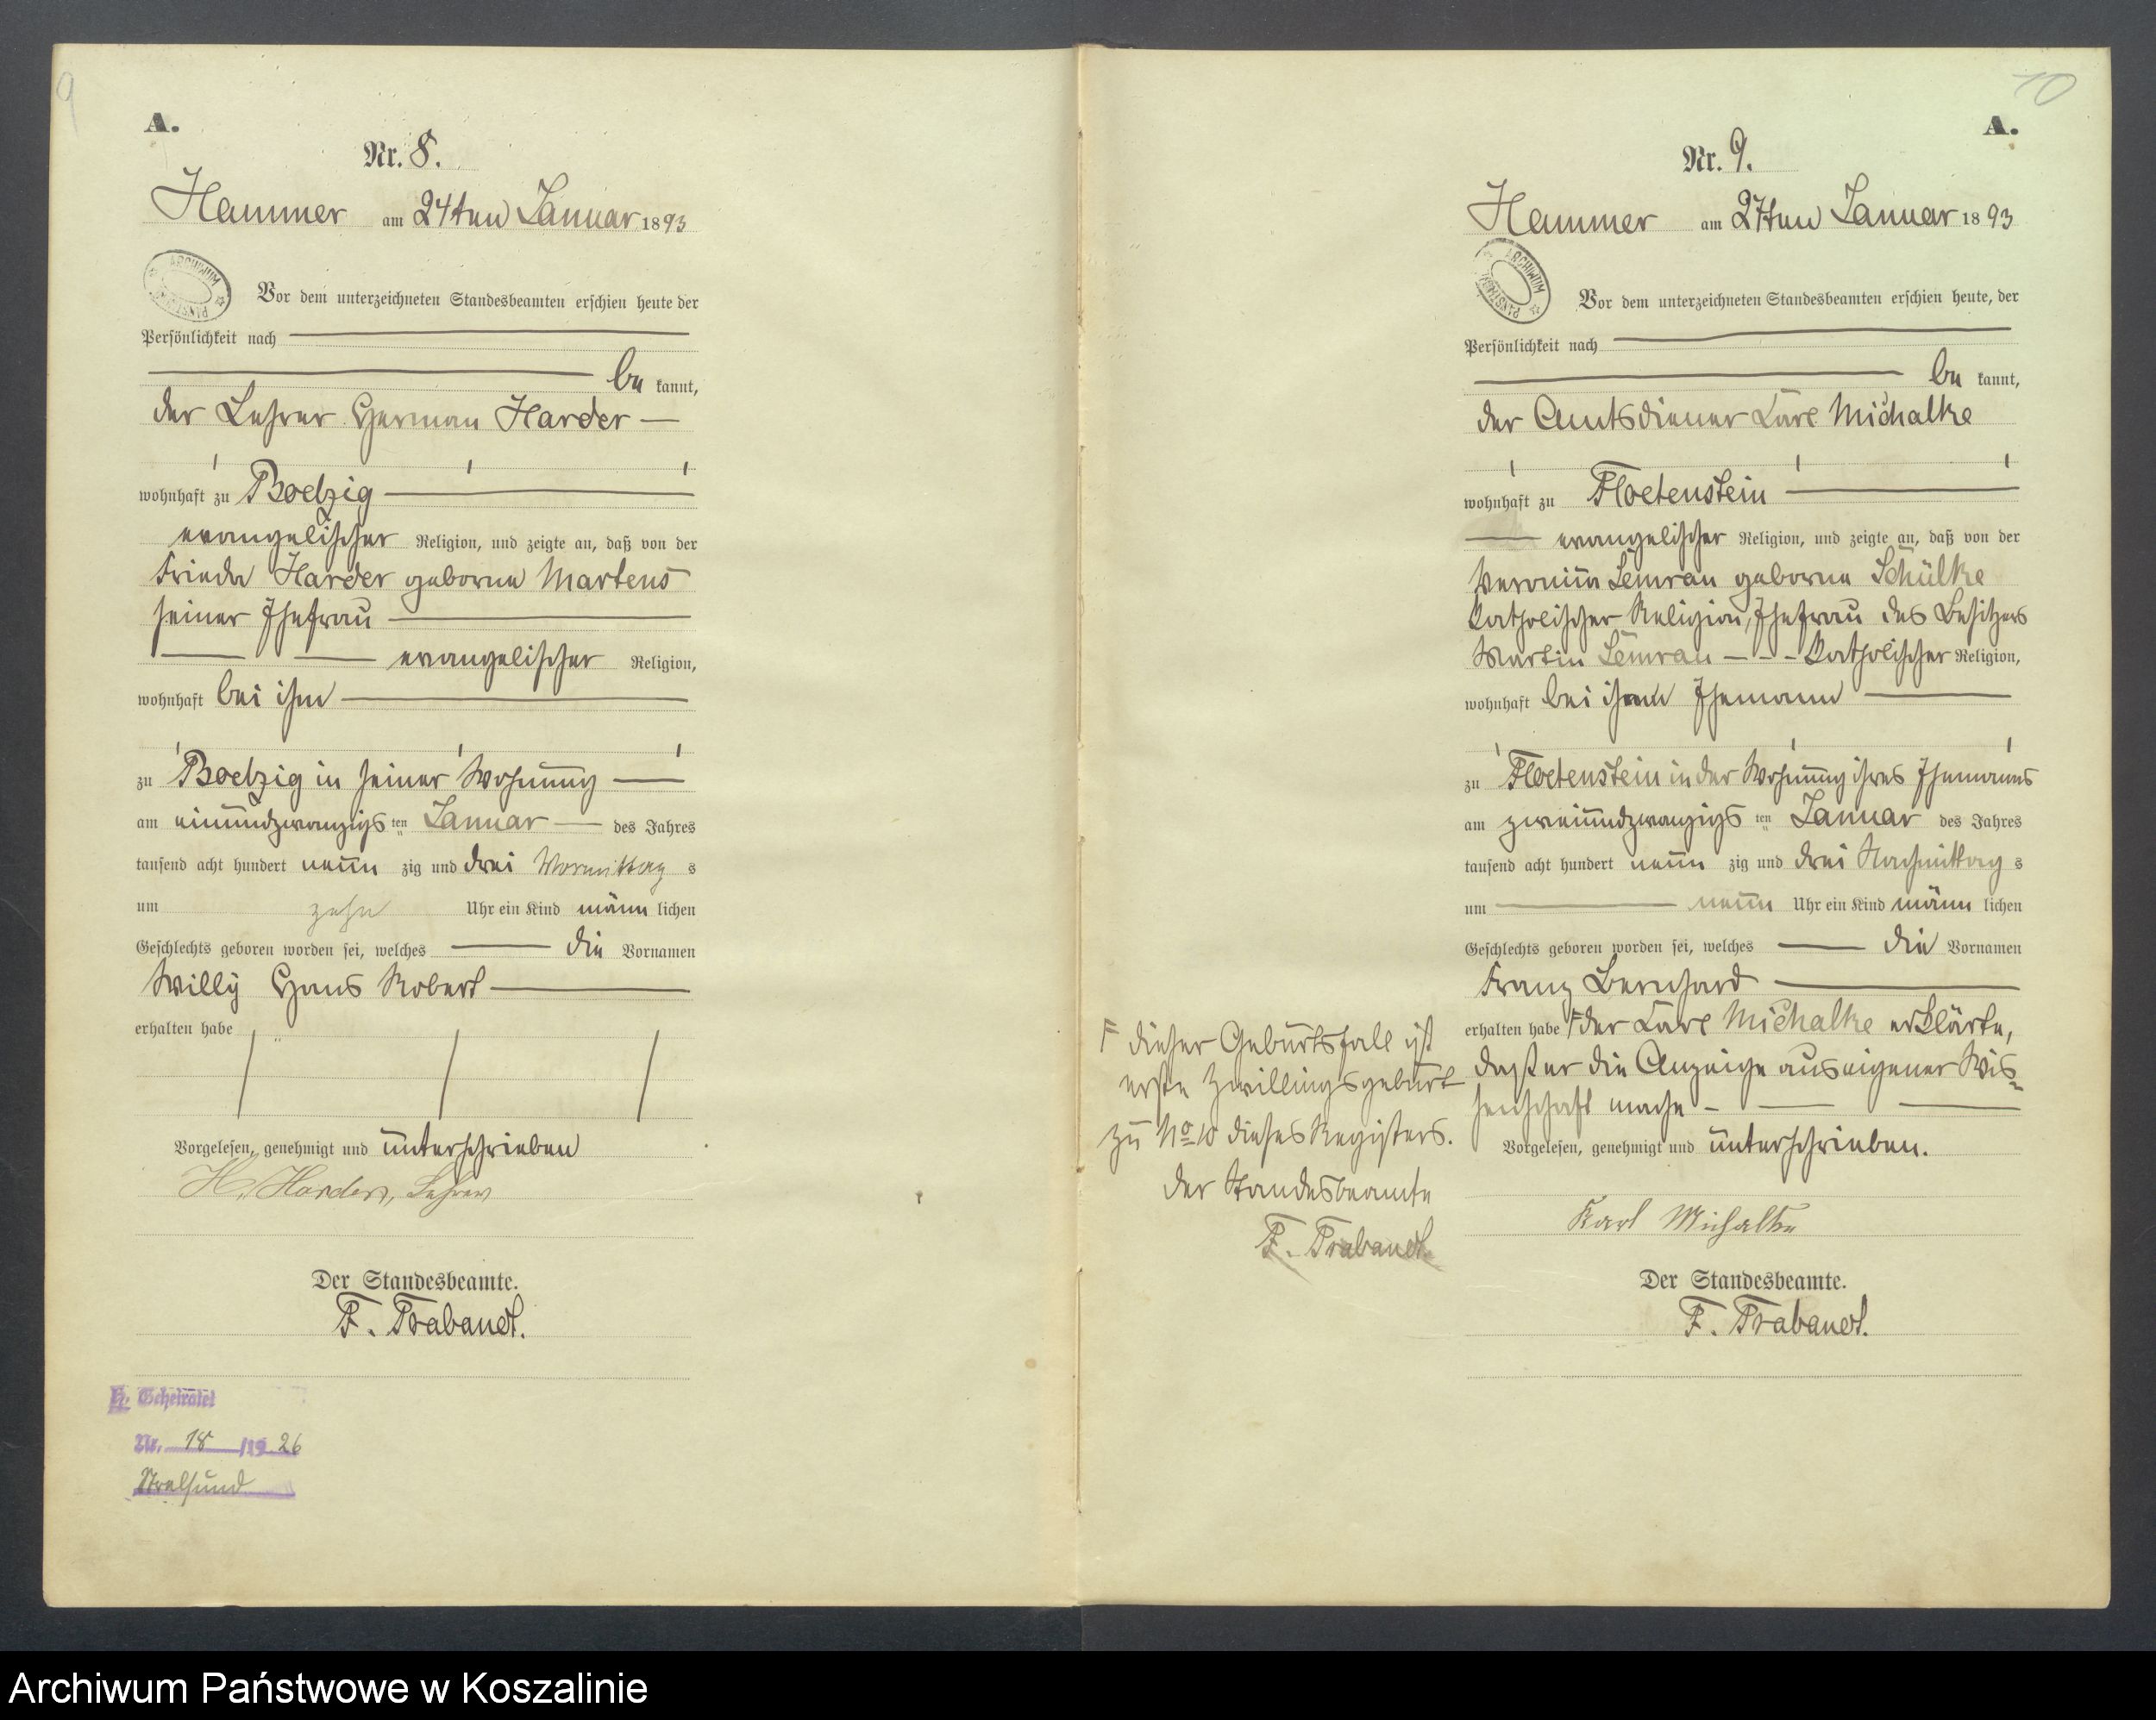 9
A.
Nr. 8.
Hammer am 24ten Januar 1893
ARCHIWUM
Vor dem unterzeichneten Standesbeamten erschien heute der
Persönlichkeit nach
be kannt,
der Lehrer Herman Harder
wohnhaft zu Boelzig
evangelischer Religion, und zeigte an, daß von der
Frieda Harder geborne Martens
seiner Ehefrau
evangelischer Religion,
wohnhaft bei ihm
zu Boelzig in seiner Wohnung
am einundzwanzigs ten Januar des Jahres
tausend acht hundert neun zig und drei Vormittag s
um zehn Uhr ein Kind männ lichen
Geschlechts geboren worden sei, welches die Vornamen
Willy Hans Robert
erhalten habe
Vorgelesen, genehmigt und unterschrieben
H. Harder, Lehrer
Der Standesbeamte.
F. Trabandt.
Geheiratet
Nr. 18 /19 26
Stralsund
10
A.
Nr. 9.
Hammer am 27ten Januar 1893
ARCHIWUM
Vor dem unterzeichneten Standesbeamten erschien heute, der
Persönlichkeit nach
be kannt,
der Amtsdiener Carl Michalke
wohnhaft zu Floetenstein
evangelischer Religion, und zeigte an, daß von der
Geborne Schülke
katholischer Religion, Ehefrau des Besitzers
Martin Semrau - - - katholischer Religion,
wohnhaft bei ihrem Ehemann
zu Floetenstein in der Wohnung ihres Ehemannes
am zweiundzwanzigs ten Januar des Jahres
tausend acht hundert neun zig und drei Nachmittag s
um neun Uhr ein Kind männ lichen
Geschlechts geboren worden sei, welches die Vornamen
Franz Bernhard
erhalten habe F der Carl Michalke erklärte,
daß er die Anzeige aus eigener Wis=
senschaft mache -
Vorgelesen, genehmigt und unterschrieben.
Karl Michalke
Der Standesbeamte.
F. Trabandt.
F dieser Geburtsfall ist
erste Zwillingsgeburt
zu No 10 dieses Registers.
der Standesbeamte
F. Trabandt.
Archiwum Państwowe w Koszalinie